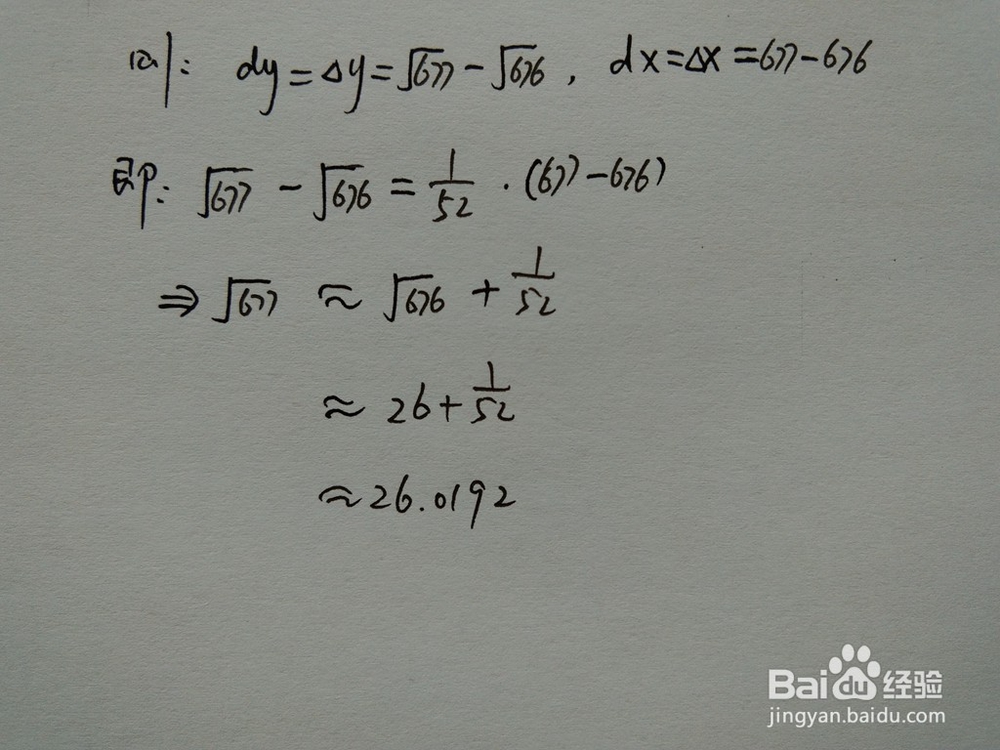 则: dy=Δy=√677-√676, dx=Δx=677-676
即: √677 - √676 = 1/52 · (677-676)
⇒ √677 ≈ √676 + 1/52
≈ 26+1/52
≈26.0192
Baidu经验
jingyan.baidu.com